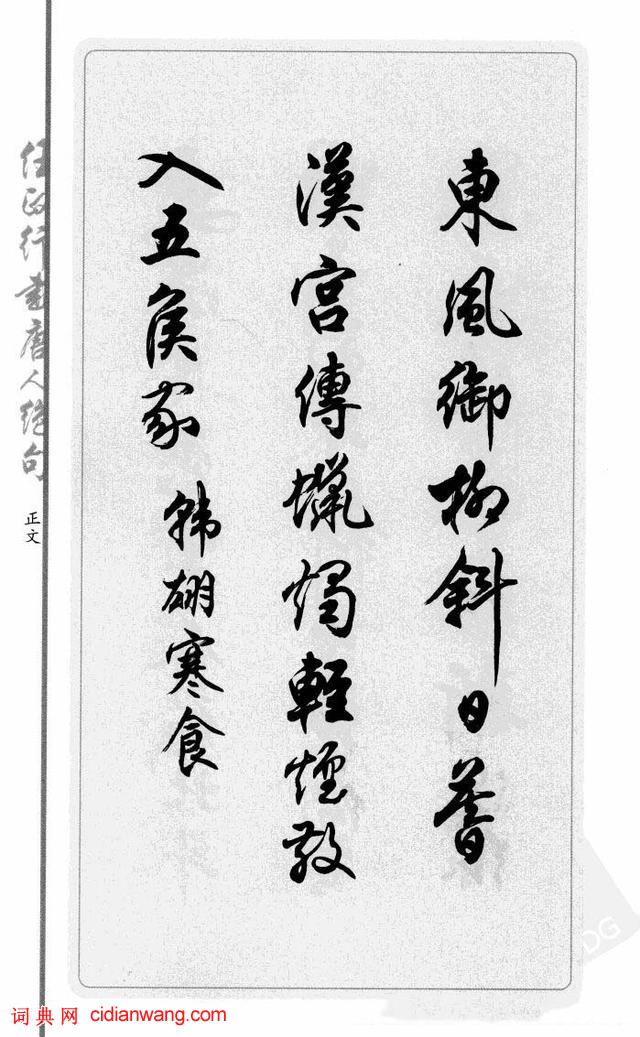 東風御柳斜日暮
漢宮傳蠟燭輕煙散
入五侯家 韓翃寒食
任政行書唐人绝句
正文
词典网 cidianwang.com
DG